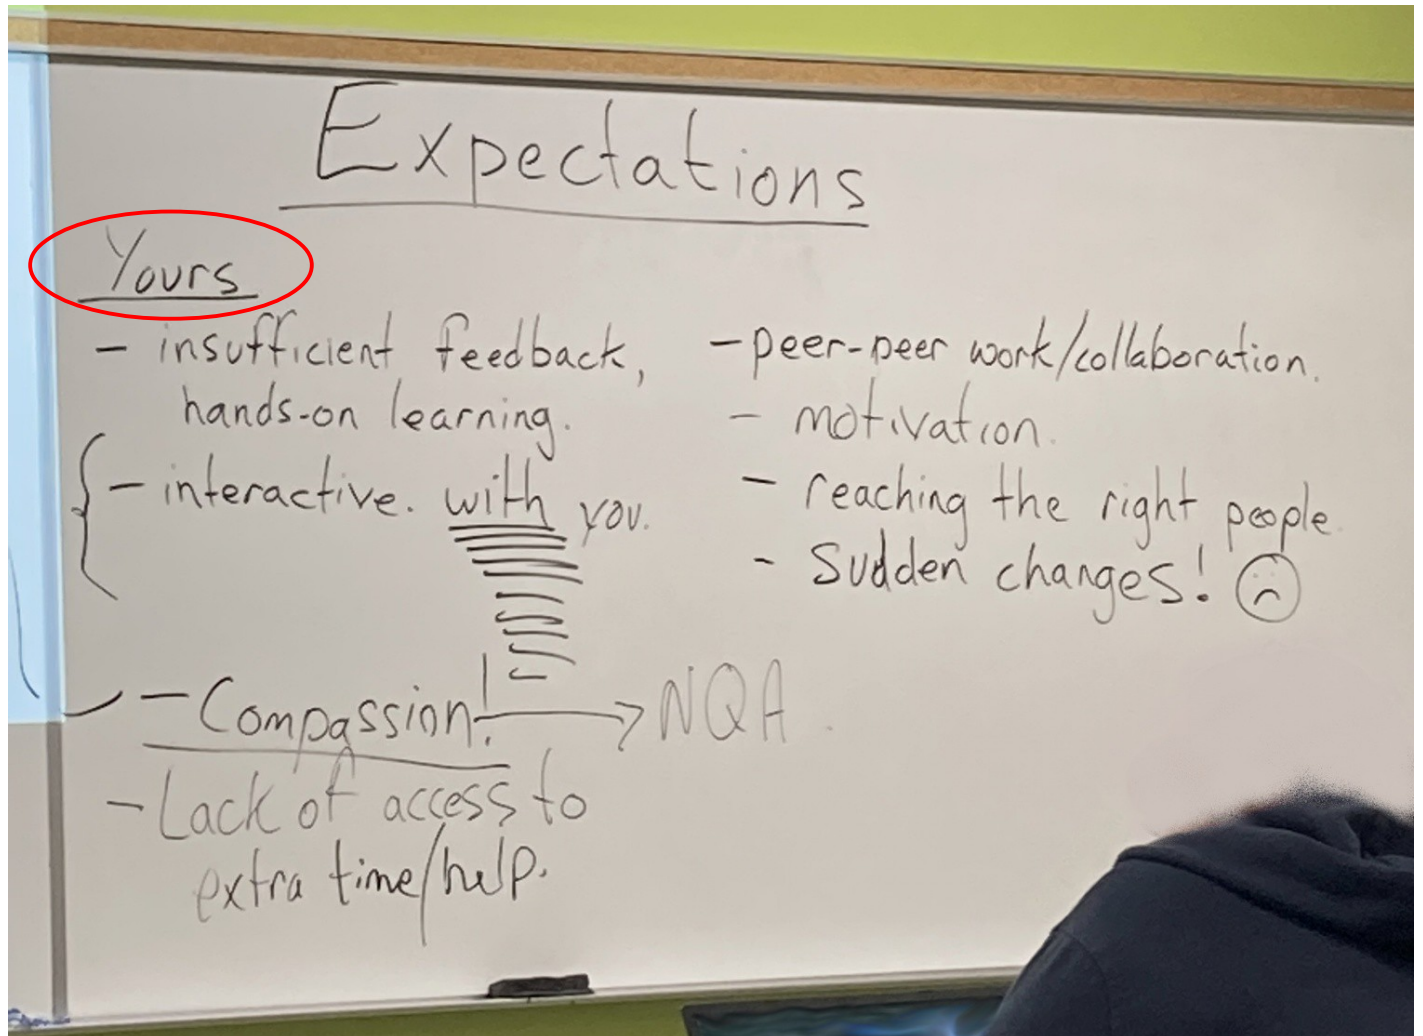 Expectations
Yours
- insufficient feedback,
hands-on learning.
- interactive. with you.
- Compassion! → NQA
- Lack of access to
extra time/help.
- peer-peer work/collaboration.
- motivation.
- reaching the right people
- Sudden changes! ☹